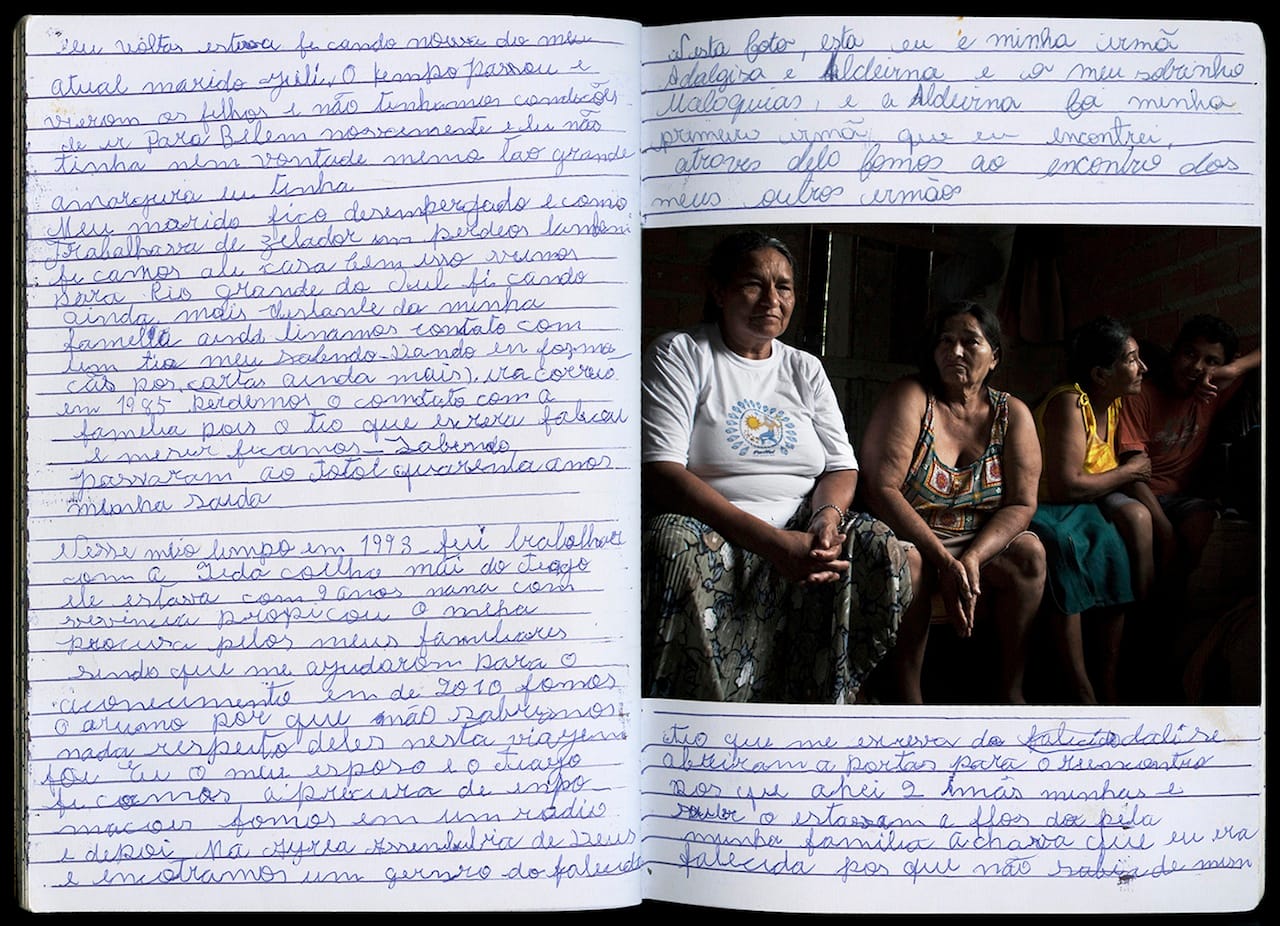 seu voltas estava fi cando noiva do meu
atual marido Jeili, O tempo Passou e
vierom os filhos e não tinhamos condições
de ir Para Belem novamente e eu não
tinha nem vontade memo tão grande
amargura eu tinha
Meu marido fico desempergado e como
Trabalhava de zelador um perdeos também
fi camos ale casa bem isso viemos
para Rio grande do Sul fi cando
ainda mais distante da minha
familia ainda tinamos contato com
um tio meu sabendo dando en forma
cãs por cartas ainda mais) era correio
em 1985 Perdemos o contato com a
familia pois o tio que escrera faliceu
e mesur ficamos Sabendo
passaram ao total quarenta anos
minha saida
Nesse meio tempo em 1993 fui trabalhar
com a Ieda coelho mãi do tiago
ele estava com 9 anos nana com
vivencia propicou O minha
procura pelos meus familiares
sendo que me ajudarom para o
aconecimento em de 2010 fomos
O arumo por que não sabiamos
nada respeito deles nesta viagem
foi Eu O meu esposo e o Tiago
fi camos a procura de enfo
macois fomos em um radio
e depoi, Na Igreja Assembulia de Deus
e encotramos um genrro do falecido
Nesta foto, esta eu e minha irmã
Adalgiza e Aldeirna e o meu sobrinho
Malaquias, e a Aldeirna foi minha
primeiro irmã que eu encontrei,
atraves delo fomos ao encontro dos
meus outros irmãos
tio que me escreva do falecido dali se
abriram a portas para o reencontro
Dos que ahei 2 Imãs minhas e
o estavam a flos dos pela
minha familia achava que eu era
falecida por que não sabia de mim